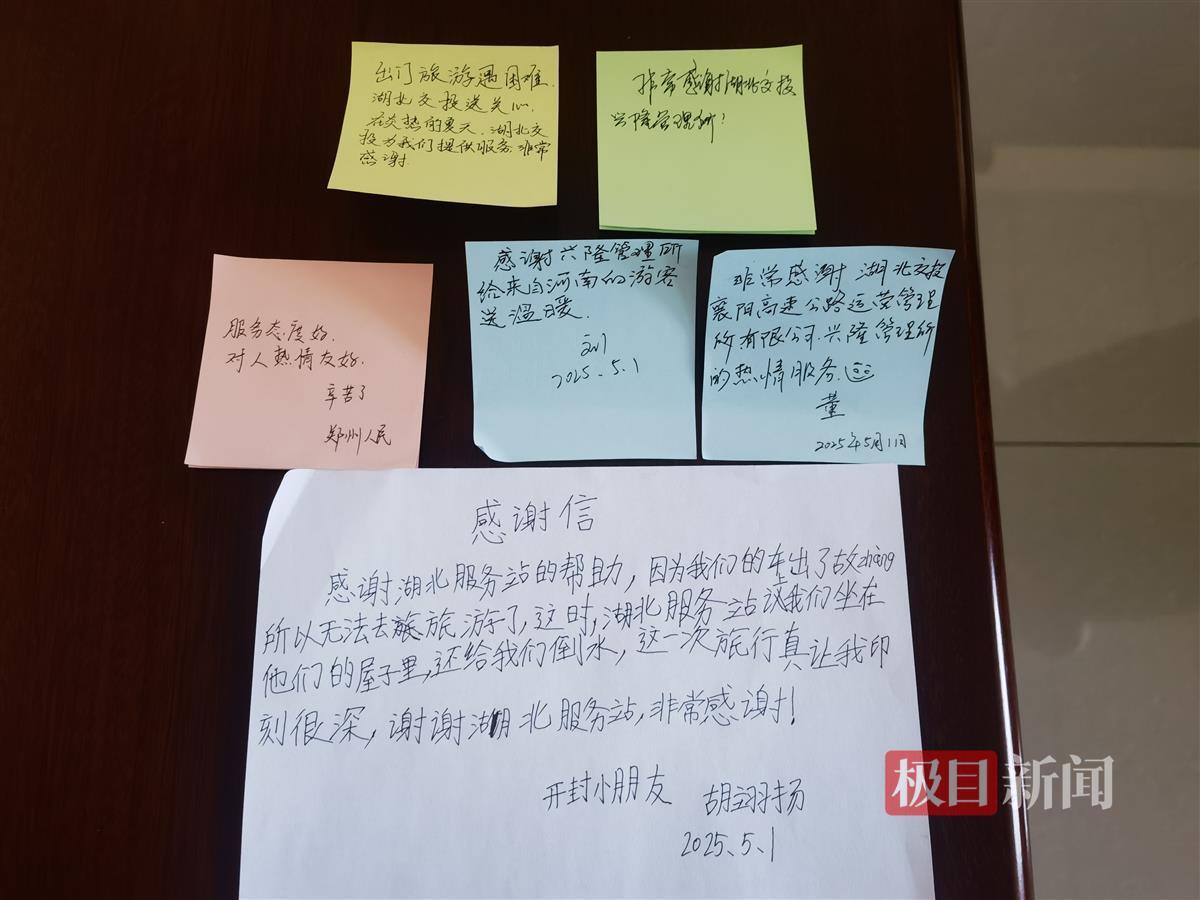 出门旅游遇困难.
湖北交投送关心.
在炎热的夏天.湖北交
投为我们提供服务.非常
感谢.
非常感谢湖北交投
兴隆管理所!
服务态度好.
对人热情友好.
辛苦了
郑州人民
感谢兴隆管理所
给来自河南的游客
送温暖.
刘
2025.5.1
非常感谢 湖北交投
襄阳高速公路运营管理
所有限公司.兴隆管理所
的热情服务.
董
2025年5月1日
感谢信
感谢湖北服务站的帮助,因为我们的车出了故zhàng
所以无法去旅游了,这时,湖北服务站让我们坐在
他们的屋子里,还给我们倒水,这一次旅行真让我印
刻很深,谢谢湖北服务站,非常感谢!
开封小朋友 胡翊扬
2025.5.1
极目新闻